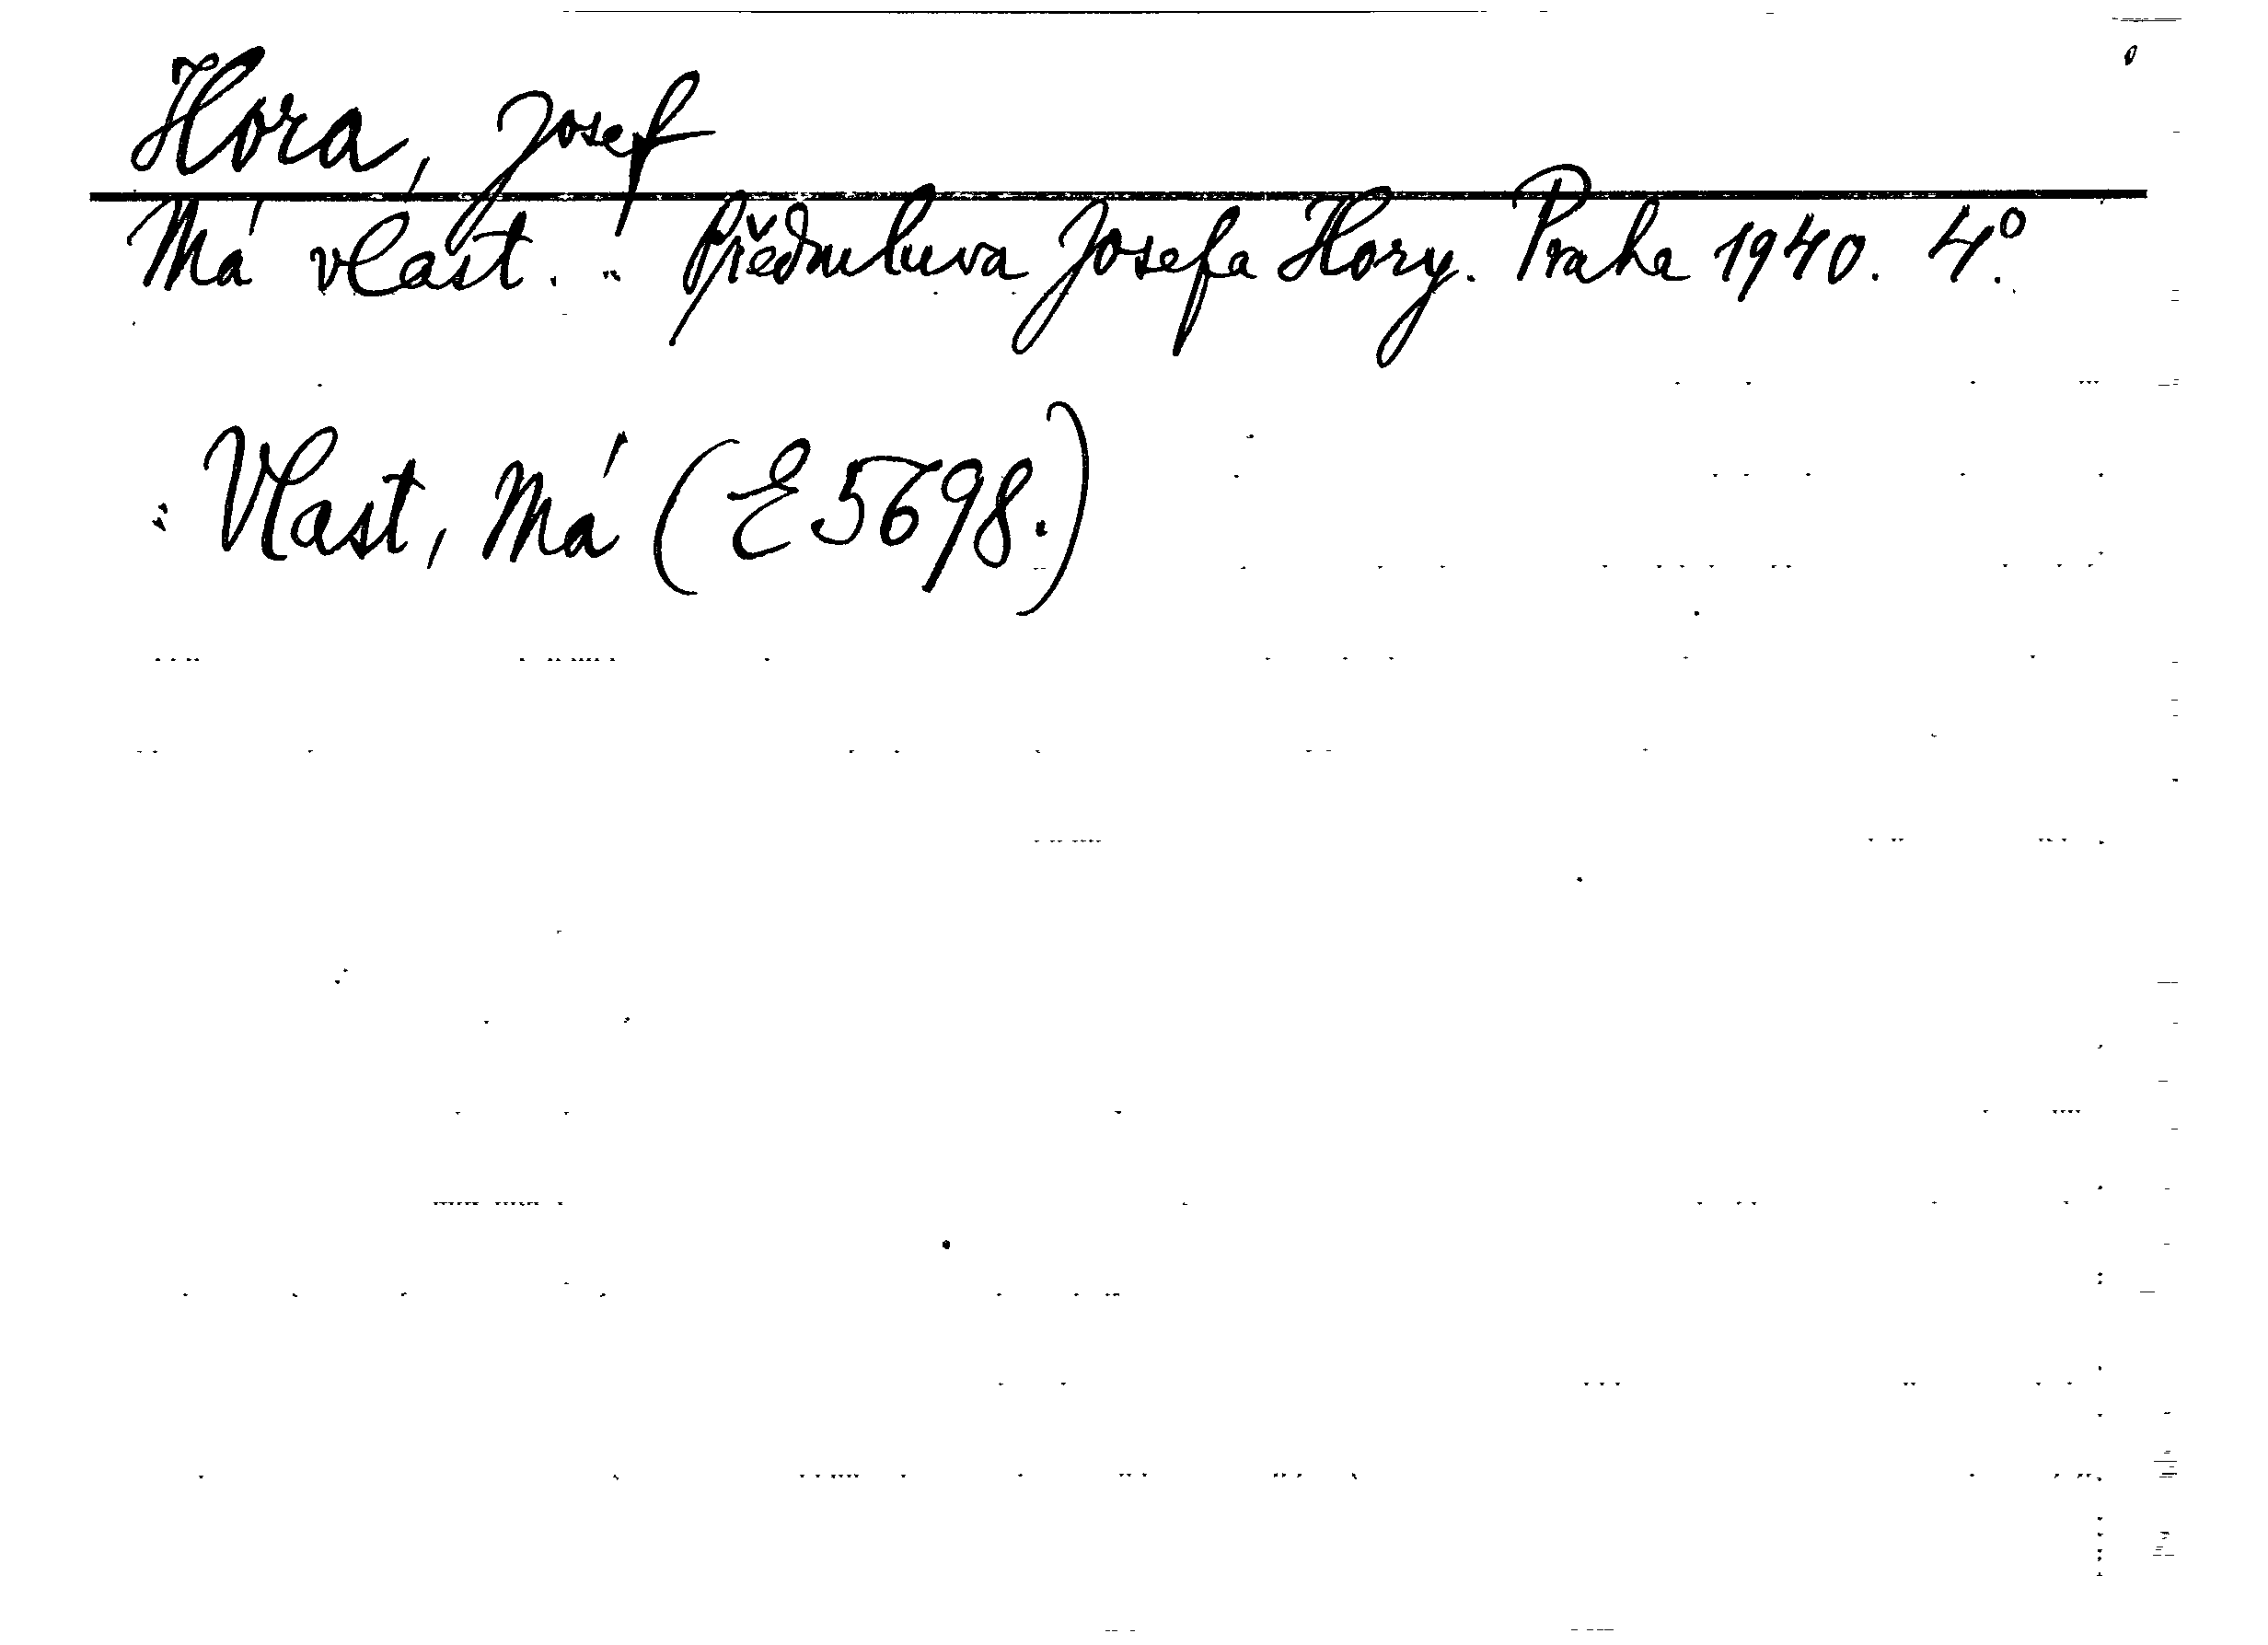 Hora, Josef
Má vlast. .. Předmluva Josefa Hory. Praha 1940. 4.°
: Vlast, Má (E 5698.)